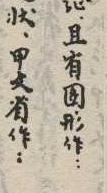 且有圆形作…
状、甲文省作：